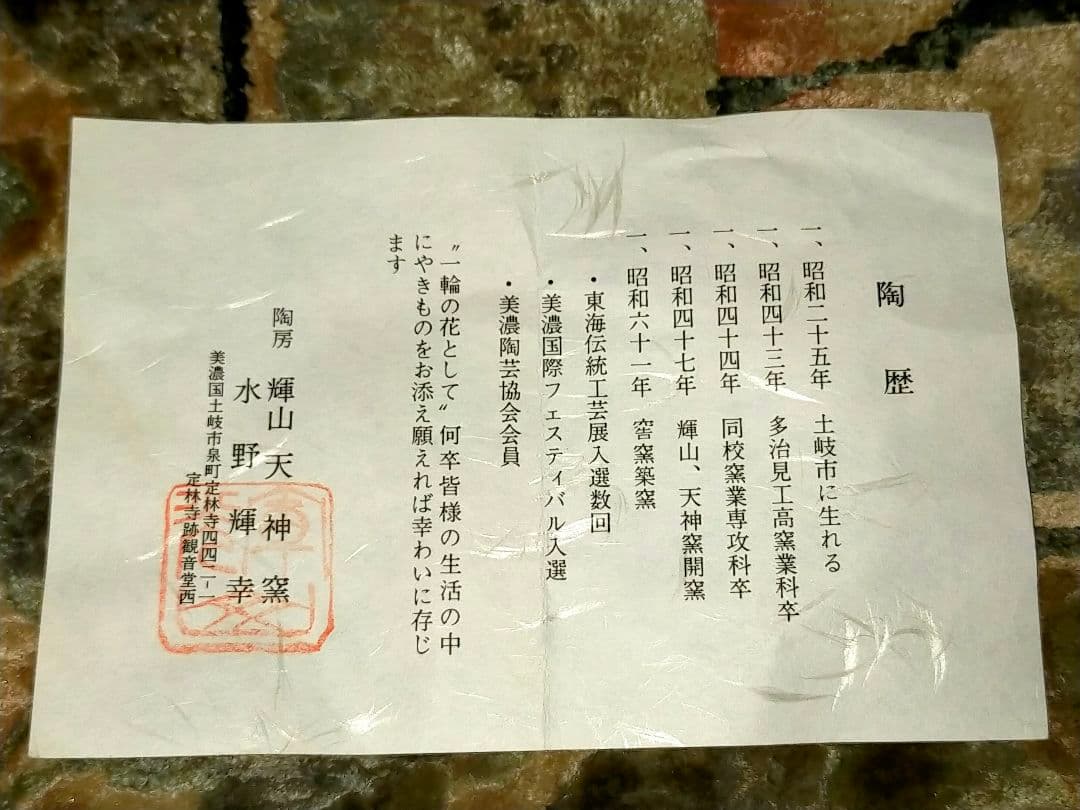 陶歴
一、昭和二十五年 土岐市に生れる
一、昭和四十三年 多治見工高窯業科卒
一、昭和四十四年 同校窯業専攻科卒
一、昭和四十七年 輝山、天神窯開窯
一、昭和六十一年 窖窯築窯
・東海伝統工芸展入選数回
・美濃国際フェスティバル入選
・美濃陶芸協会会員
〝一輪の花として〟何卒皆様の生活の中
にやきものをお添え願えれば幸わいに存じ
ます
陶房 輝山天神窯
水野輝幸
美濃国土岐市泉町定林寺四四二-一
定林寺跡観音堂西